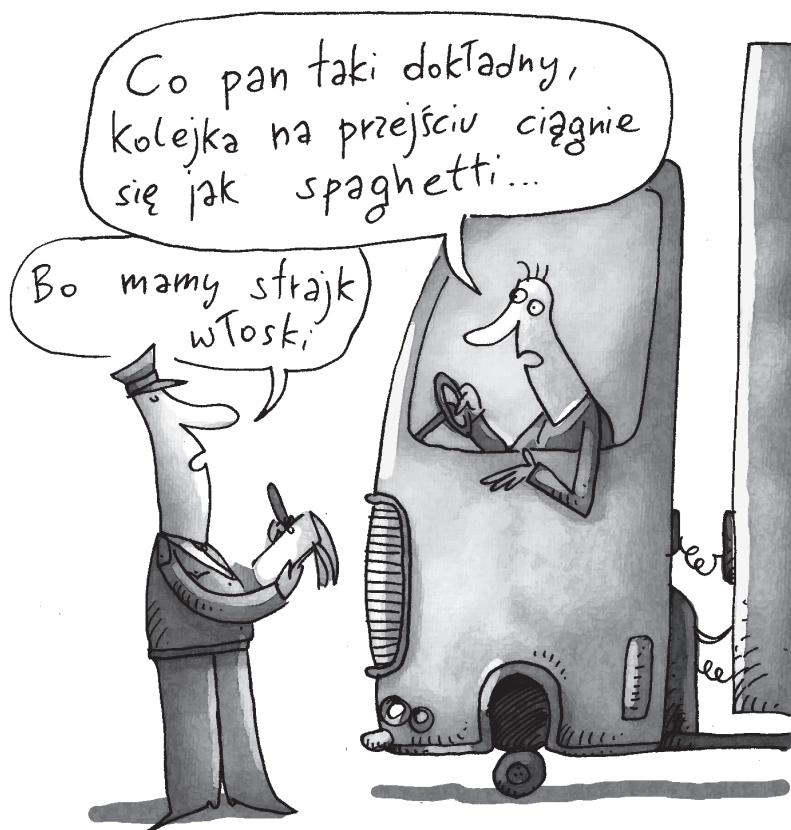 Co pan taki dokładny,
kolejka na przejściu ciągnie
się jak spaghetti...
Bo mamy strajk
włoski